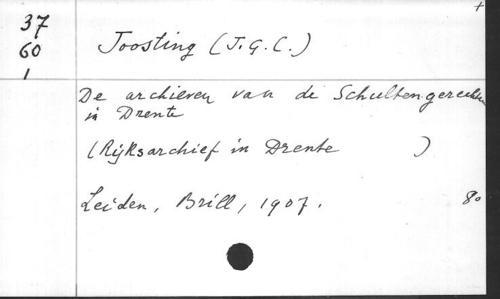 +
37
60
1
Joosting (J.G.C.)
De archieven van de Schultengerechten
in Drente
(Rijksarchief in Drente )
Leiden, Brill, 1907. 8o